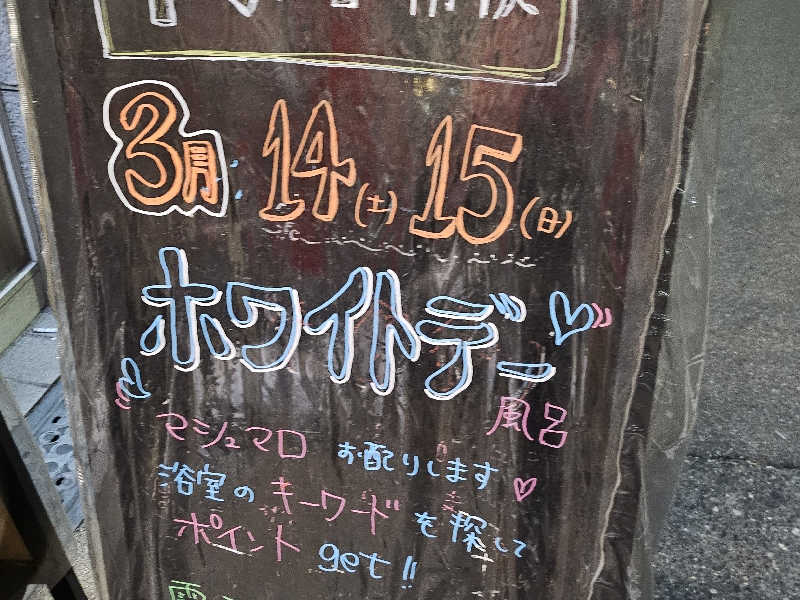 3月 14(土) 15(日)
ホワイトデー
風呂
マシュマロ お配りします
浴室の キーワード を探して
ポイント get!!